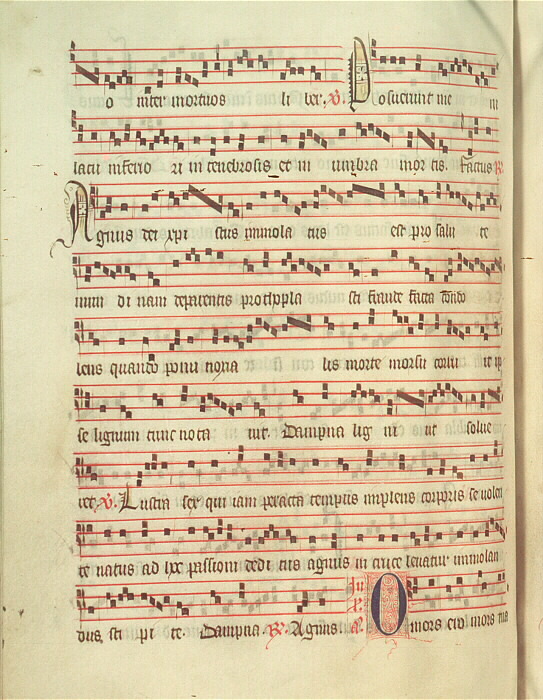 o inter mortuos li ber. V. Posuerunt me in
lacu inferio ri in tenebrosis et in umbra mor tis. Factus R
Agnus dei xpi stus ymmola tus est pro salu te
mun di nam deparentis prothopla sti fraude facta
lens quando pomi noxia lis morte morsu corru it
se lignum tunc no ta uit. Dampna lig ni ut solue
ret. V. Lustra sex qui iam peracta tempus implens corporis se volen
te natus ad hoc passioni dedi tus agnus in cruce levatur immolan
dus sti pi te. Dampna. R. Agnus. O mors ero mors tua